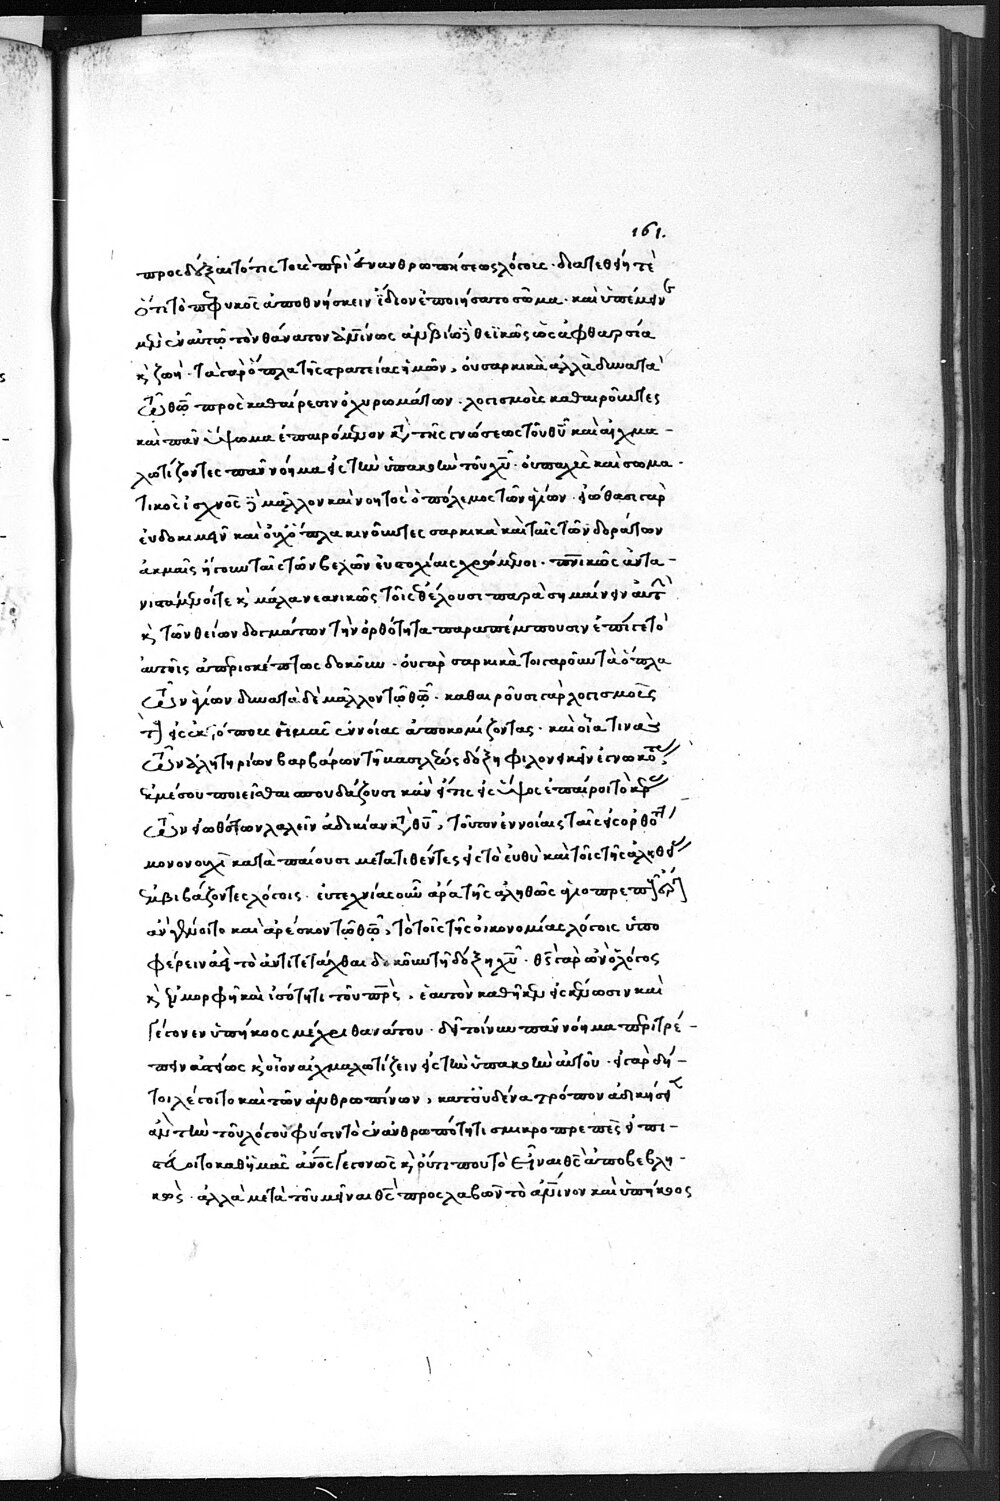 161.
προσδέξαιτό τις τοὺς περὶ ἐνανθρωπήσεως λόγους · διατεθείη τε
ὅτι τὸ πεφυκὸς ἀποθνήσκειν ἴδιον ἐποιήσατο σῶμα · καὶ ὑπέμεινε
μὲν ἐν αὐτῷ τὸν θάνατον ἀνθρωπίνως ἀνεβίω δὲ θεϊκῶς ὡς ἀφθαρσία
καὶ ζωή · τὰ γὰρ ὅπλα τῆς στρατείας ἡμῶν, οὐ σαρκικὰ ἀλλὰ δυνατὰ
τῷ θεῷ πρὸς καθαίρεσιν ὀχυρωμάτων · λογισμοὺς καθαιροῦντες
καὶ πᾶν ὕψωμα ἐπαιρόμενον κατὰ τῆς γνώσεως τοῦ θεοῦ καὶ αἰχμα-
λωτίζοντες πᾶν νόημα εἰς τὴν ὑπακοὴν τοῦ χριστοῦ · οὐ παχὺς καὶ σωμα-
τικὸς ἰσχνὸς δὲ μᾶλλον καὶ νοητὸς ὁ πόλεμος τῶν ἁγίων · εἰώθασι γὰρ
εὐδοκιμεῖν καὶ οὐχ ὅπλα κινοῦντες σαρκικὰ καὶ ταῖς τῶν δοράτων
ἀκμαῖς ἤγουν ταῖς τῶν βελῶν εὐστοχίαις χρώμενοι · πνευματικῶς ἀντα-
νιστάμενοί τε καὶ μάλα νεανικῶς τοῖς θέλουσι παρασημαίνειν αὐτὰ
καὶ τῶν θείων δογμάτων τὴν ὀρθότητα παραπέμπουσιν ἐπί γε τὸ
αὐτοῖς ἀπερισκέπτως δοκοῦν · οὐ γὰρ σαρκικὰ τοιγαροῦν τὰ ὅπλα
τῶν ἁγίων δυνατὰ δὲ μᾶλλον τῷ θεῷ · καθαιροῦσι γὰρ λογισμοὺς
ὅποι ἡμᾶς ἐννοίας ἀποκομίζοντας · καὶ οἷά τινα
τῶν ἀλητηρίων βαρβάρων τῇ δόξῃ φιλονεικεῖν ἐγνωκότων
ἐκ μέσου ποιεῖσθαι σπουδάζουσι κἂν εἴ τις εἰς ὕψος ἐπαίροιτο
τῶν εἰωθότων λαλεῖν ἀδικίαν κατὰ θεοῦ, τοῦτον ἐννοίαις ταῖς εἰς ὀρθότητα
μονονουχὶ καταπαίουσι μετατιθέντες εἰς τὸ εὐθὺ καὶ τοῖς τῆς ἀληθείας
ἐμβιβάζοντες λόγοις · εὐτεχνίας οὖν ἄρα τῆς ἀληθῶς ἁγιοπρεποῦς
ἂν ἡγεῖτο καὶ ἀρέσκον τῷ θεῷ, τὸ τοῖς τῆς οἰκονομίας λόγοις ὑπο
φέρειν ἀεὶ τὸ ἀντιτετάχθαι δοκοῦν τῇ δόξῃ χριστοῦ · θεὸς γὰρ ὢν ὁ λόγος
καὶ ἐν μορφῇ καὶ ἰσότητι τοῦ πατρὸς, ἑαυτὸν καθῆκεν εἰς κένωσιν καὶ
γέγονεν ὑπήκοος μέχρι θανάτου · δεῖ τοίνυν πᾶν νόημα περιτρέ-
πειν ἀστείως καὶ οἷον αἰχμαλωτίζειν εἰς τὴν ὑπακοὴν αὐτοῦ · εἰ γὰρ δή-
τοι λέγοιτο καὶ τῶν ἀνθρωπίνων, κατ' οὐδένα τρόπον ἀδικήσειεν
ἂν τὴν τοῦ λόγου φύσιν τὸ ἐν ἀνθρωπότητι σμικροπρεπὲς ἐπι-
στάζοιτο καθ' ἡμᾶς ἄνθρωπος γεγονὼς καὶ οὔτι που τὸ εἶναι θεὸς ἀποβεβλη-
κώς · ἀλλὰ μετὰ τοῦ μεῖναι θεὸς προσλαβὼν τὸ ἀνθρώπινον καὶ ὑπήκοος